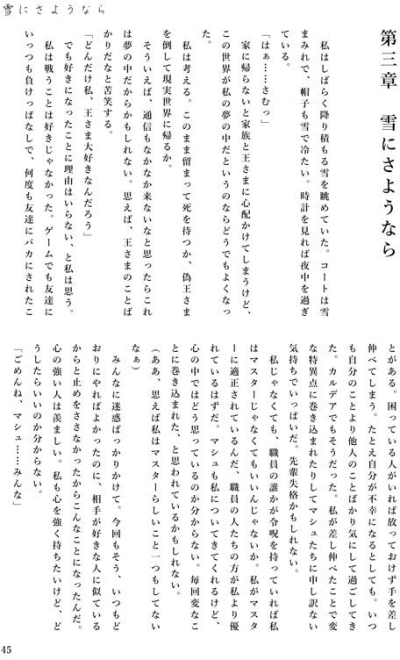 雪にさようなら
第三章　雪にさようなら
　私はしばらく降り積もる雪を眺めていた。コートは雪
まみれで、帽子も雪で冷たい。時計を見れば夜中を過ぎ
ている。
「はぁ……さむっ」
　家に帰らないと家族と王さまに心配かけてしまうけど、
この世界が私の夢の中だというのならどうでもよくなっ
た。
　私は考える。このまま留まって死を待つか、偽王さま
を倒して現実世界に帰るか。
　そういえば、通信もなかなか来ないなと思ったらこれ
は夢の中だからかもしれない。思えば、王さまのことば
かりだなと苦笑する。
「どんだけ私、王さま大好きなんだろう」
　でも好きになったことに理由はいらない、と私は思う。
　私は戦うことは好きじゃなかった。ゲームでも友達に
いっつも負けっぱなしで、何度も友達にバカにされたこ
とがある。困っている人がいれば放っておけず手を差し
伸べてしまう。たとえ自分が不幸になるとしても。いつ
も自分のことより他人のことばかり気にして過ごしてき
た。カルデアでもそうだった。私が差し伸べたことで変
な特異点に巻き込まれたりしてマシュたちに申し訳ない
気持ちでいっぱいだ。先輩失格かもしれない。
　私じゃなくても、職員の誰かが令呪を持っていれば私
はマスターじゃなくてもいいんじゃないか。私がマスタ
ーに適正されているんだ、職員の人たちの方が私より優
れているはずだ。マシュも私についてきてくれるけど、
心の中ではどう思っているのか分からない。毎回変なこ
とに巻き込まれた、と思われているかもしれない。
（ああ、思えば私はマスターらしいこと一つもしてない
なぁ）
　みんなに迷惑ばっかりかけて。今回もそう、いつもど
おりにやればよかったのに、相手が好きな人に似ている
からと止めをささなかったからこんなことになったんだ。
心の強い人は羨ましい。私も心を強く持ちたいけど、ど
うしたらいいのか分からない。
「ごめんね、マシュ……みんな」
45